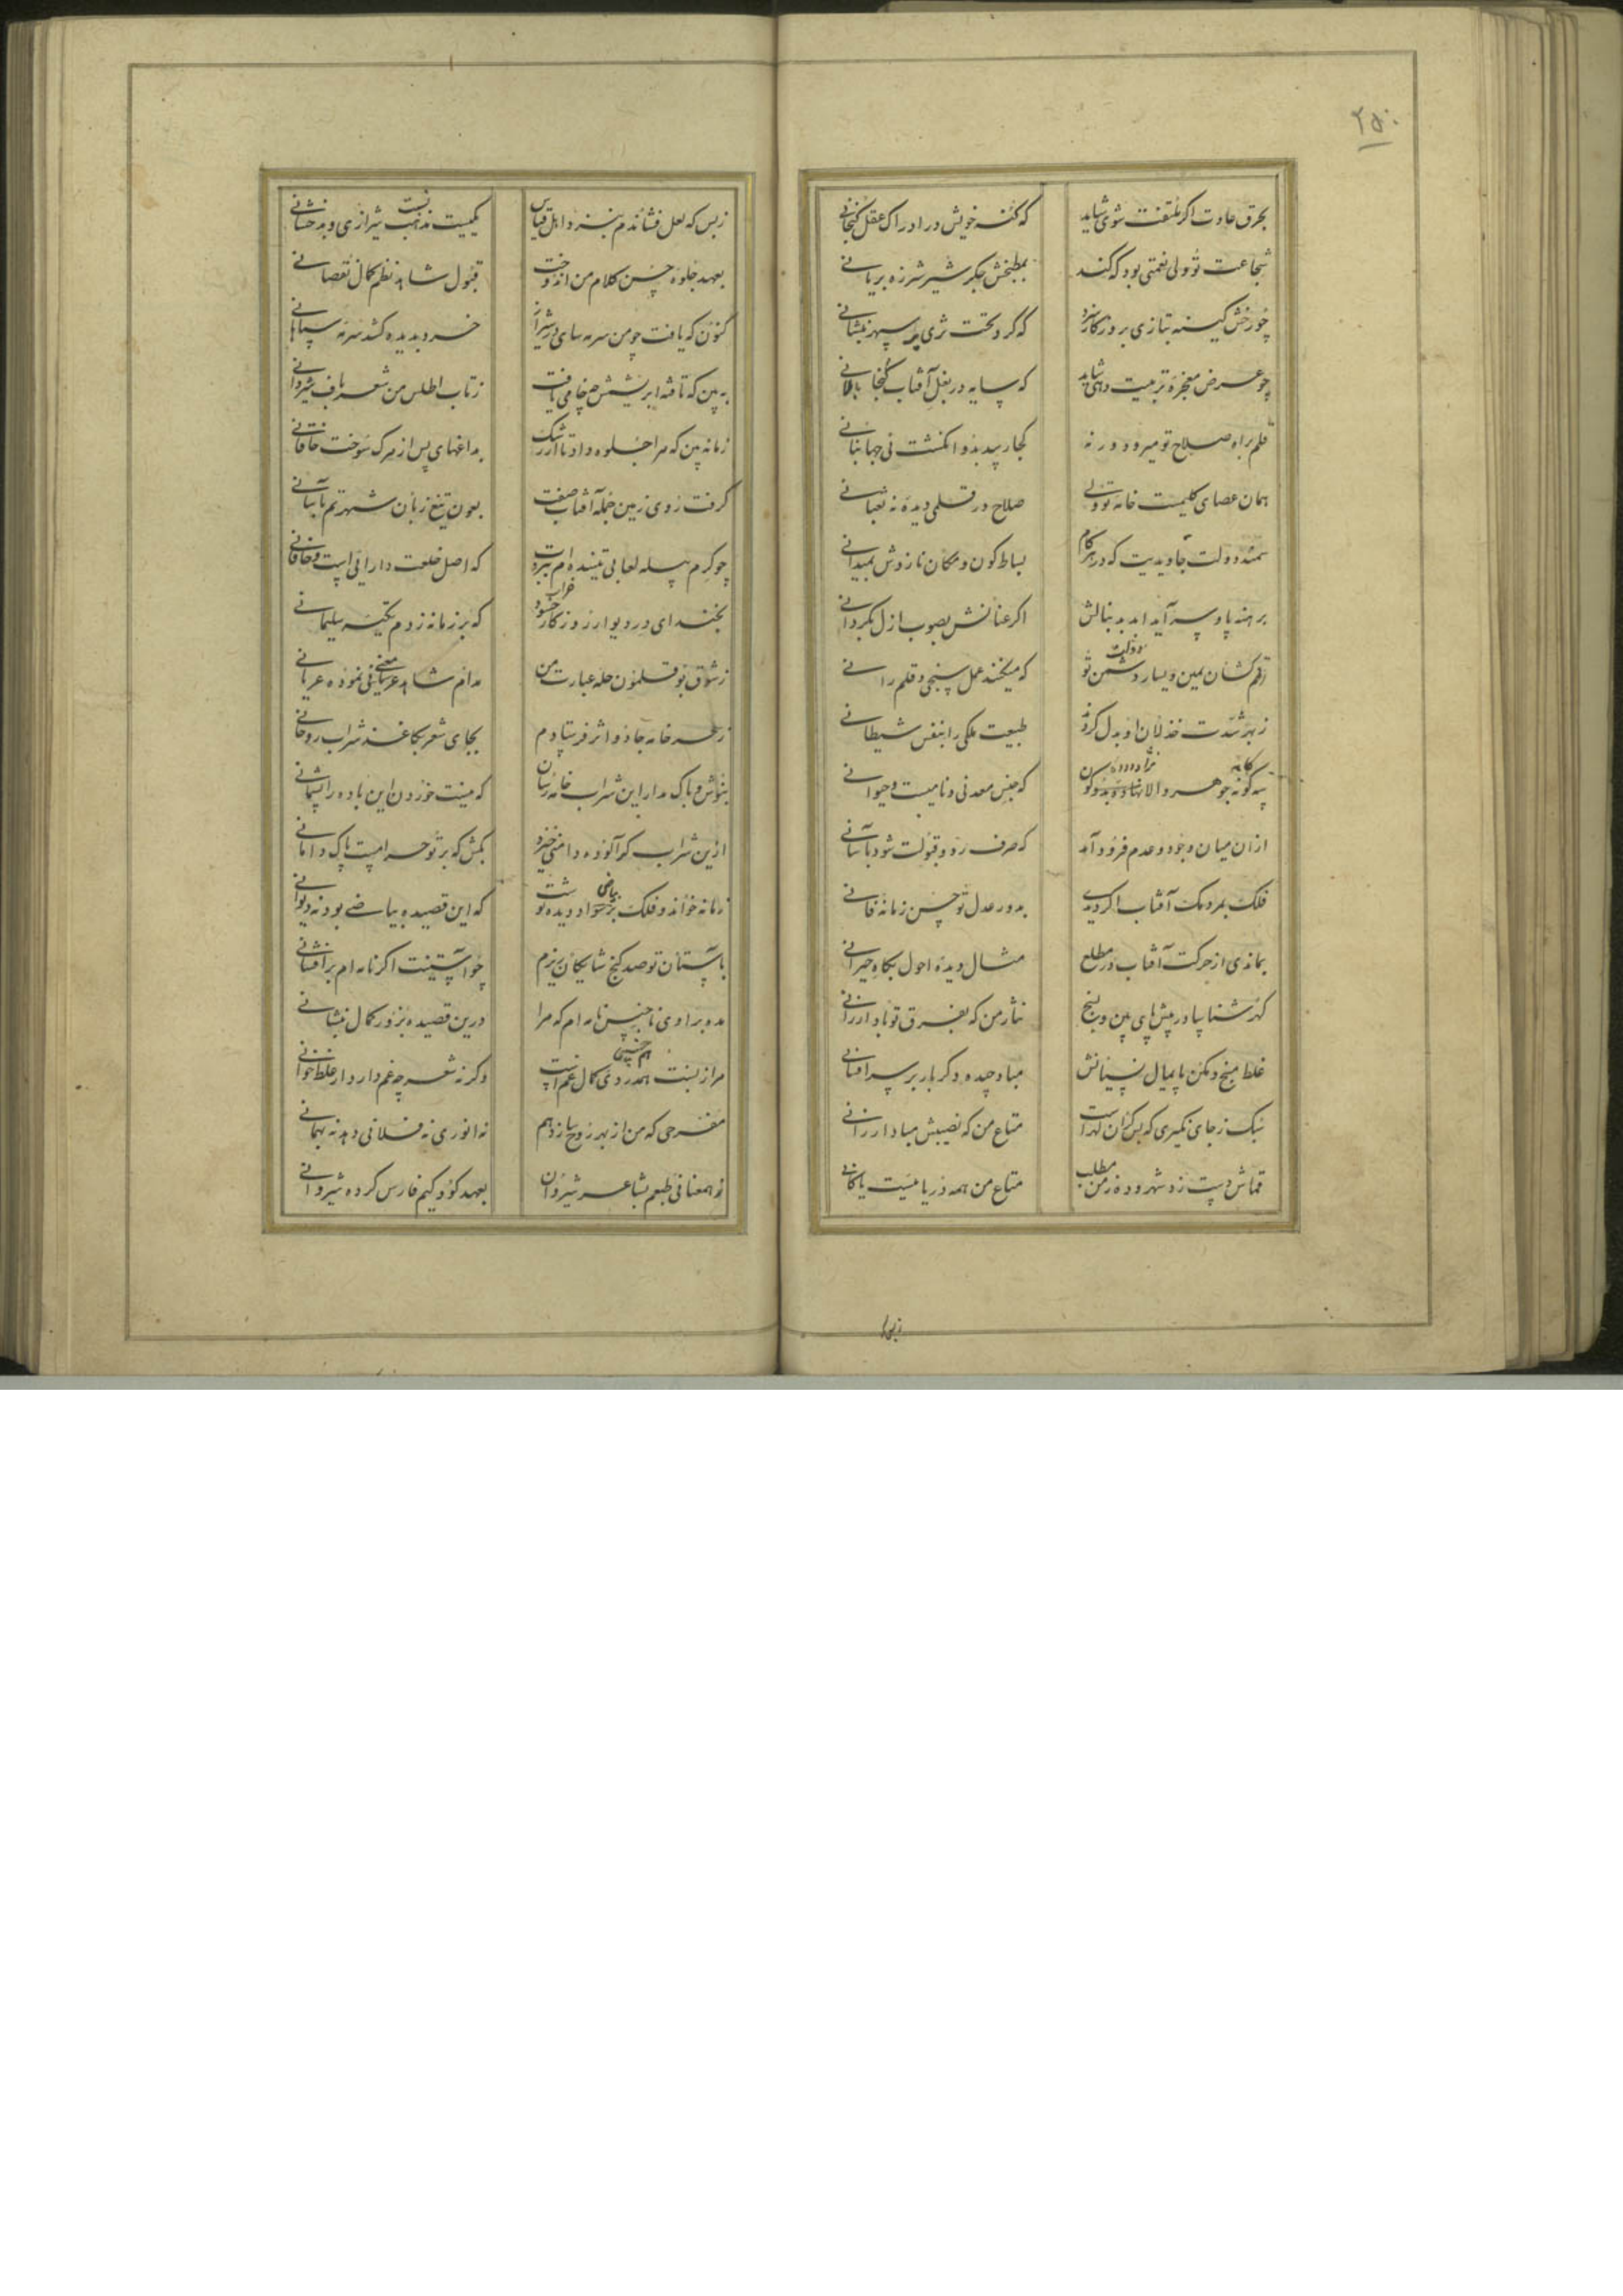 ۲۵۰
بخرق عادت اگر ملتفت شوی شاید که کنه خویش در ادراک عقل گنجانی
شجاعت تو ولی نعمتی بود که کند بمطبخش جگر شیر شرزه بریانی
چو رخش کینه بتازی بروزگار نبرد که گرد تخت ثری بر سپهر بنشانی
چو عرض معجزه تربیت دهی شاید که سایه در بغل آفتاب گنجانی
قلم براه صلاح تو میرود ورنه کجا رسید بدو انگشت نی جهانبانی
همان عصای کلیمست خامه تو ولی صلاح در قلمی دیده نه ثعبانی
سمند دولت جاویدیست که در هر گام بساط کون و مکان نازدش بمیدانی
برهنه پا و سر آید ابد بدنبالش اگر عنانش بصوب ازل بگردانی
رقم کشان یمین و یسار دشمن تو دولت که میکنند عمل سنجی و قلم رانی
ز بهر شدت خذلان او بدل کردند طبیعت ملکی را بنفس شیطانی
سه گونه جوهر والانژاد که جنس معدنی و نامیست و حیوانی
از آن میان وجود و عدم فرود آمد که صرف رد و قبولت شود بآسانی
فلک بمردمک آفتاب اگر دیدی بدور عدل تو حسن زمانه فانی
بماندی از حرکت آفتاب در مطلع مثال دیده احول بگاه حیرانی
گهرشناسا در پیش پای بین و بسنج نثار من که بفرق تو باد ارزانی
غلط مسنج و مکن پایمال نسیانش مباد چیده و گر بار بر سر افشانی
سبک ز جای نگیری که بس گران گهر است متاع من که نصیبش مباد ارزانی
قماش دست زد شهر و ده ز من مطلب متاع من همه دریائیست یا کانی
زبس که
زبس که لعل فشاندم بنزد اهل قیاس یکیست نسبت شیرازی و بدخشانی
بعهد جلوه حسن کلام من اندوخت قبول شاهد نظم کمال نقصانی
کنون که یافت چو من سرمه سای در شیراز خرد بدیده کشد سرمه سپاهانی
ببین که تافته ابریشمش چه خامی یافت ز تاب اطلس من شعرباف شروانی
زمانه بین که مرا جلوه داد تا از رشک بداغهای پس از مرگ سوخت خاقانی
گرفت روی زمین جمله آفتاب صفت بعون تیغ زبان شهرتم بآسانی
چو کرم پیله لعابی تنیده ام بهرت که اصل خلعت دارائی است و خاقانی
بخند ای در و دیوار روزگار خراب حسود که بر زمانه زدم تکیه سلیمانی
ز شوق بوقلمون حله عبارت من مدام شاهد معنی نموده عریانی
ز خمر خانه جادو اثر فرستادم بجای شعر بکاغذ شراب روحانی
بنوش و باک مدار این شراب خانه رسان که نیست خوردن این باده را پشیمانی
از این شراب گر آلوده دامنی خیزد بکش که بر تو حرامست پاک دامانی
زمانه خواند و فلک بر بیاض دیده نوشت سواد که این قصیده بیاضی بود نه دیوانی
بآستان تو صد گنج شایگان ریزم چو آستینت اگر نامه ام برافشانی
مده براوی ناجنس نامه ام که مرا درین قصیده بزور کمال بنشانی
مرا ز نسبت هم جنسی کمال غم است همدردی وگرنه شعر چه غم دارد از غلط خوانی
مفرحی که من از بهر روح سازدهم نه انوری نه فلانی دهد نه بهمانی
ز همعنانی طبعم بشاعر شروان بعهد کودکیم فارس کرده شروانی